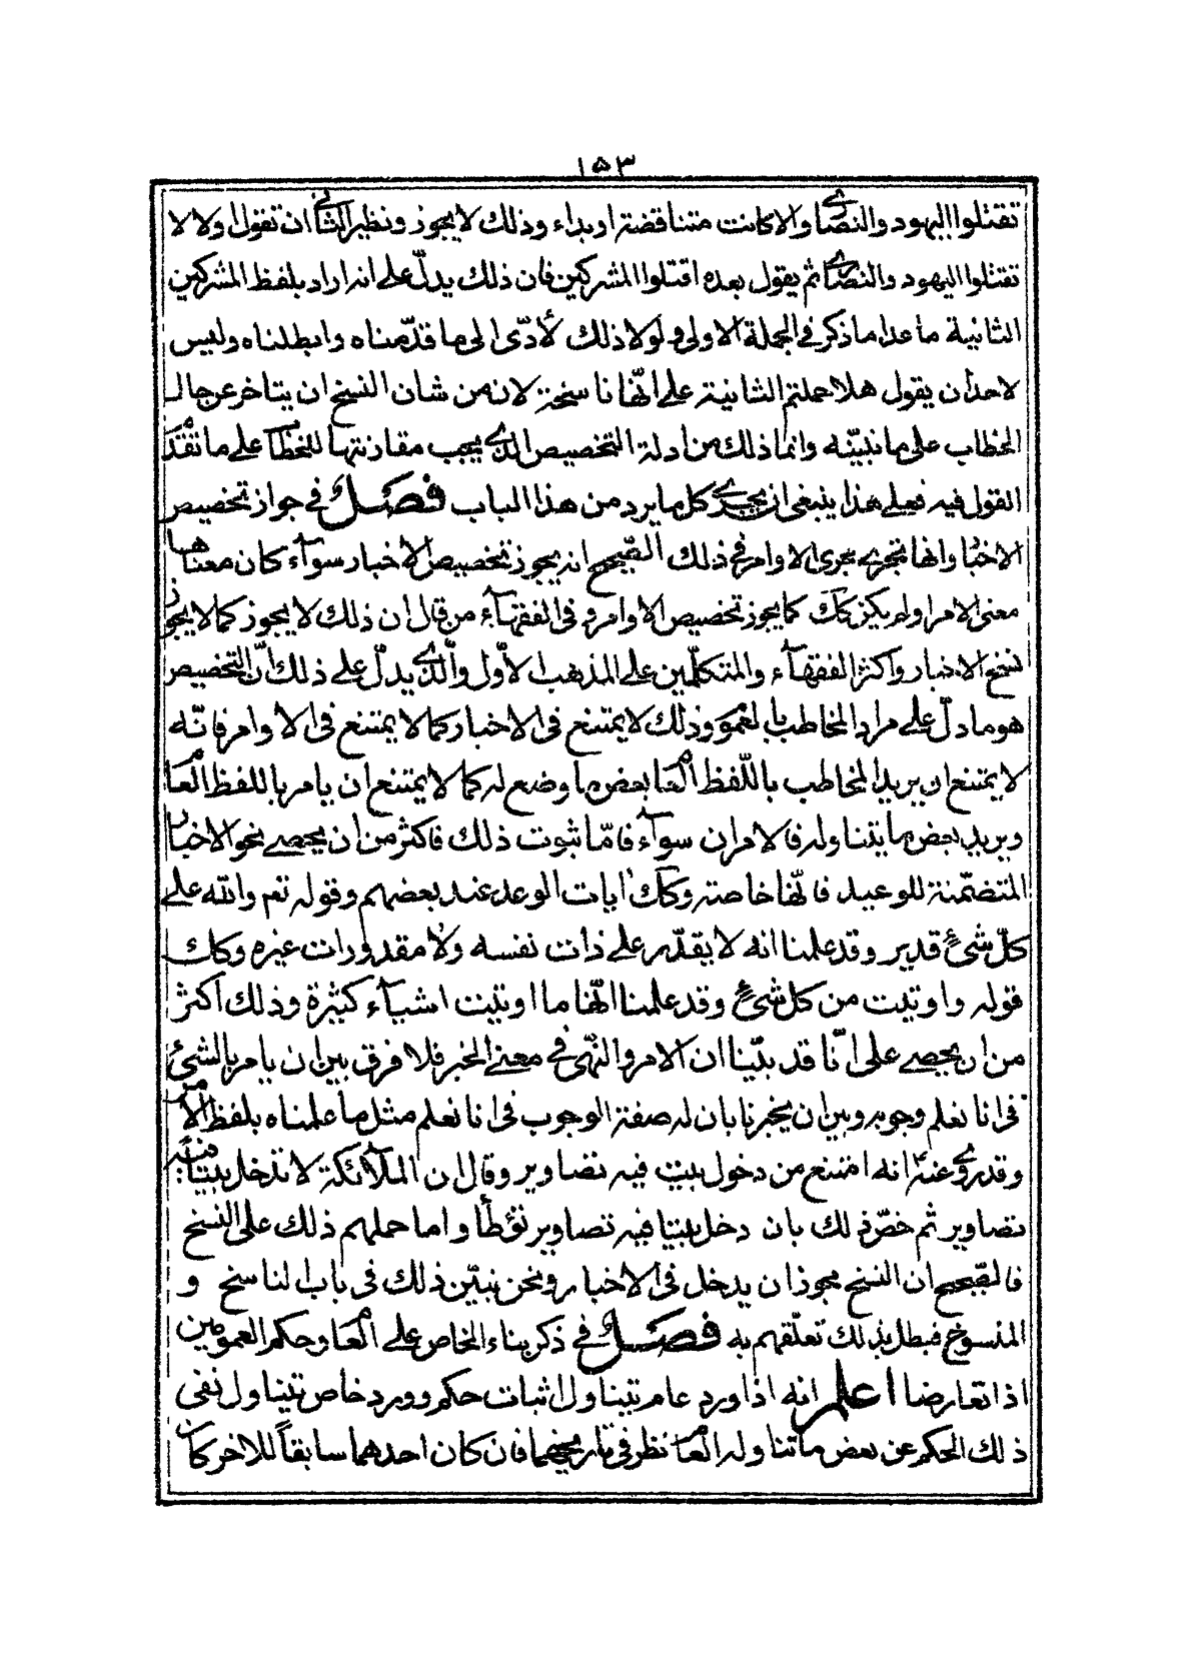 ١٥٣
تقتلوا اليهود والنصارى والا كانت متناقضة او بداء وذلك لا يجوز ونظير الثانى ان تقول اولا لا
تقتلوا اليهود والنصارى ثم يقول بعده اقتلوا المشركين فان ذلك يدلّ على انه اراد بلفظ المشركين
الثانية ما عدا ما ذكر فى الجملة الاولى ولولا ذلك لأدّى الى ما قدّمناه وابطلناه وليس
لاحد ان يقول هلا حملتم الثانية على انّها ناسخة لان من شان النسخ ان يتاخر عن حال
الخطاب على ما نبيّنه وانما ذلك من ادلة التخصيص الذى يجب مقارنتها للخطاب على ما تقدم
القول فيه فعلى هذا ينبغى ان يجرى كل ما يرد من هذا الباب فصل فى جواز تخصيص
الاخبار وانها تجرى مجرى الاوامر فى ذلك الصّحيح انه يجوز تخصيص الاخبار سوآء كان معناها
معنى الامر او لم يكن كك كما يجوز تخصيص الاوامر وفى الفقهآء من قال ان ذلك لا يجوز كما لا يجوز
نسخ الاخبار واكثر الفقهآء والمتكلّمين على المذهب الأوّل والّذى يدلّ على ذلك انّ التخصيص
هو ما دلّ على مراد المخاطب بالعموم وذلك لا يمتنع فى الاخبار كما لا يمتنع فى الاوامر فانّه
لا يمتنع ان يريد المخاطب باللّفظ العام بعض ما وضع له كما لا يمتنع ان يامر باللفظ العام
ويريد بعض ما يتناوله فالامران سوآء فامّا ثبوت ذلك فاكثر من ان يحصى نحو الاخبار
المتضمّنة للوعيد فانّها خاصة وكك ايات الوعد عند بعضهم وقوله تعم والله على
كلّ شئ قدير وقد علمنا انه لا يقدّر على ذات نفسه ولا مقدورات غيره وكك
قوله واوتيت من كل شئ وقد علمنا انّها ما اوتيت اشيآء كثيرة وذلك اكثر
من ان يحصى على انّا قد بيّنا ان الامر والنّهى فى معنى الخبر فلا فرق بين ان يامر بالشئ
فى انا نعلم وجوبه وبين ان يخبرنا بان له صفة الوجوب فى انا نعلم مثل ما علمناه بلفظ الأمر
وقد روى عنه ع انه امتنع من دخول بيت فيه تصاوير وقال ان الملآئكة لا تدخل بيتا فيه
تصاوير ثم خصّ ذلك بان دخل بيتا فيه تصاوير تؤطأ واما حملهم ذلك على النسخ
فالصّحيح ان النسخ يجوز ان يدخل فى الاخبار ونحن نبيّن ذلك فى باب الناسخ و
المنسوخ فبطل بذلك تعلّقهم به فصل فى ذكر بناء الخاص على العام وحكم العمومين
اذا تعارضا اعلم انه اذا ورد عام يتناول اثبات حكم وورد خاص يتناول نفى
ذلك الحكم عن بعض ما تناوله العام نظر فى تاريخهما فان كان احدهما سابقاً للاخر كان